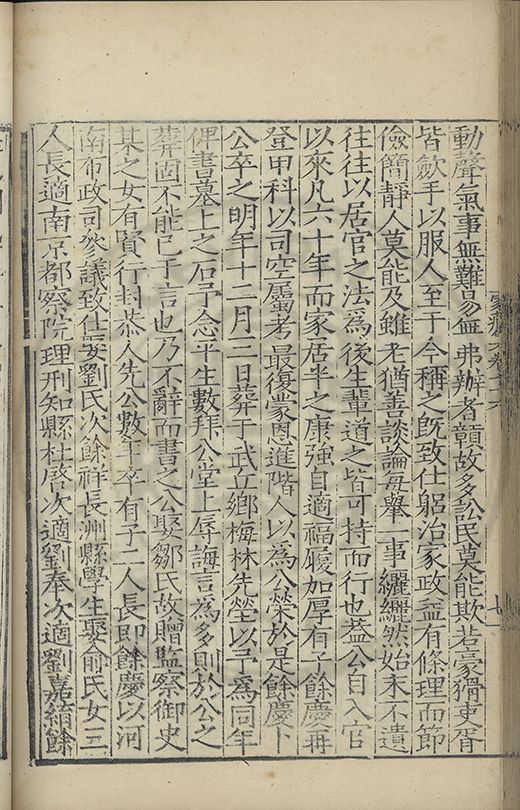 動聲氣事無難易無弗辦者贛故多訟民莫能欺若豪猾吏胥
皆歛手以服人至于今稱之既致仕躬治家政益有條理而節
儉簡靜人莫能及雖老猶善談論每舉一事纚纚然始末不遺
往往以居官之法為後生輩道之皆可持而行也葢公自入官
以來凡六十年而家居半之康強自適福履加厚有子餘慶再
登甲科以司空屬考最復蒙恩進階人以為公榮於是餘慶卜
公卒之明年十二月三日葬于武丘鄉梅林先塋以予為同年
俾書墓上之石予念平生數拜公堂上辱誨言為多則於公之
葬固不能已于言也乃不辭而書之公娶鄒氏故贈監察御史
某之女有賢行封恭人先公數年卒有子二人長即餘慶以河
南布政司叅議致仕娶劉氏次餘祥長洲縣學生娶俞氏女三
人長適南京都察院理刑知縣杜啓次適劉奉次適劉嘉䋺餘